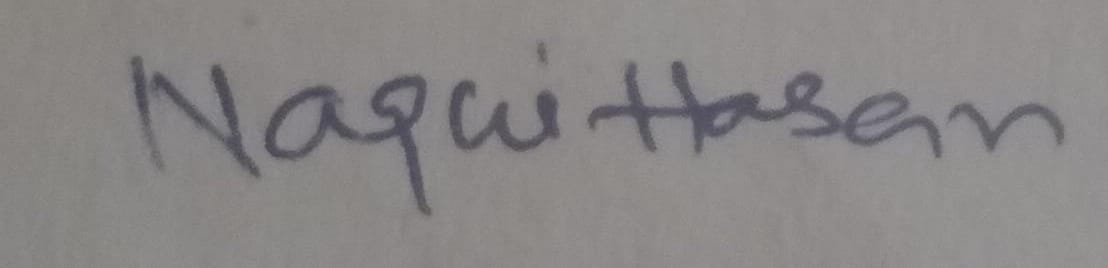 Naqui Hasan